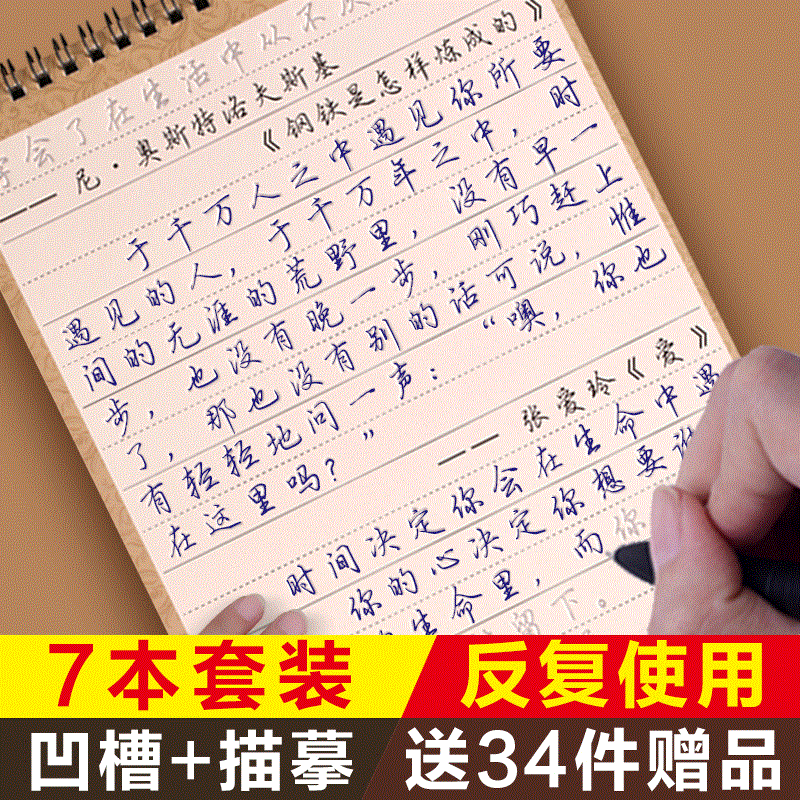 学会了在生活中从不
—— 尼·奥斯特洛夫斯基
《钢铁是怎样炼成的》
于千万人之中遇见你所要
遇见的人，于千万年之中，时
间的无涯的荒野里，没有早一
步，也没有晚一步，刚巧赶上
了，那也没有别的话可说，惟
有轻轻地问一声：“噢，你也
在这里吗？”
—— 张爱玲《爱》
时间决定你会在生命中遇
你的心决定你想要
生命里，而你
留下。
7本套装
反复使用
凹槽+描摹
送34件赠品